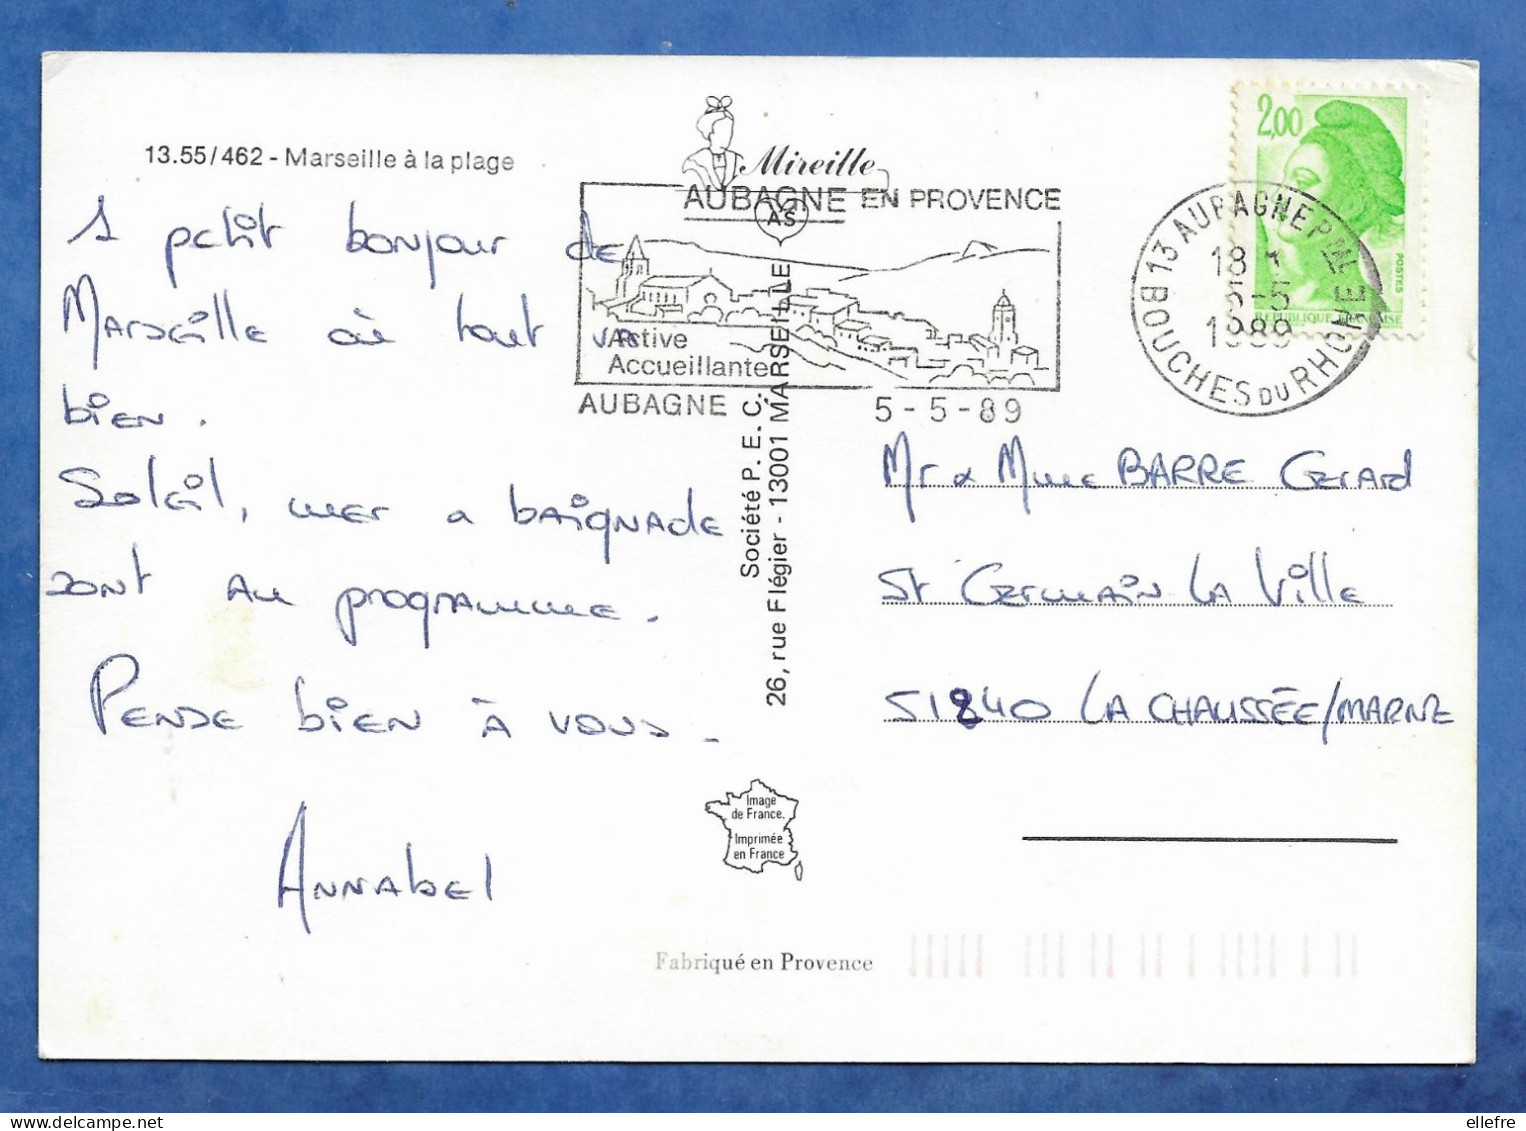 13.55/462 - Marseille à la plage
1 petit bonjour de
Marseille où tout va
bien.
Soleil, mer & baignade
sont au programme.
Pense bien à vous.
Annabel
Mireille
AUBAGNE EN PROVENCE
AS
Active
Accueillante
AUBAGNE 5-5-89
Société P. E. C.
26, rue Flégier - 13001 MARSEILLE
2,00
POSTES
REPUBLIQUE FRANCAISE
13 AUBAGNE PPAL
18 H
5-5
1989
BOUCHES DU RHONE
Mr & Mme BARRE Gerard
St Germain La Ville
51240 LA CHAUSSÉE/MARNE
Image
de France.
Imprimée
en France
Fabriqué en Provence
ellefre